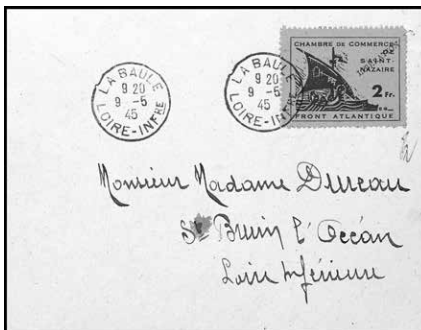 LA BAULE
9 20
9 -5
45
LOIRE-INFRE
LA BAULE
9 20
9 -5
45
LOIRE-INFRE
CHAMBRE DE COMMERCE
DE
SAINT-
NAZAIRE
2 Fr.
FRONT ATLANTIQUE
Monsieur Madame Dureau
St Brevin l'Océan
Loire Inférieure